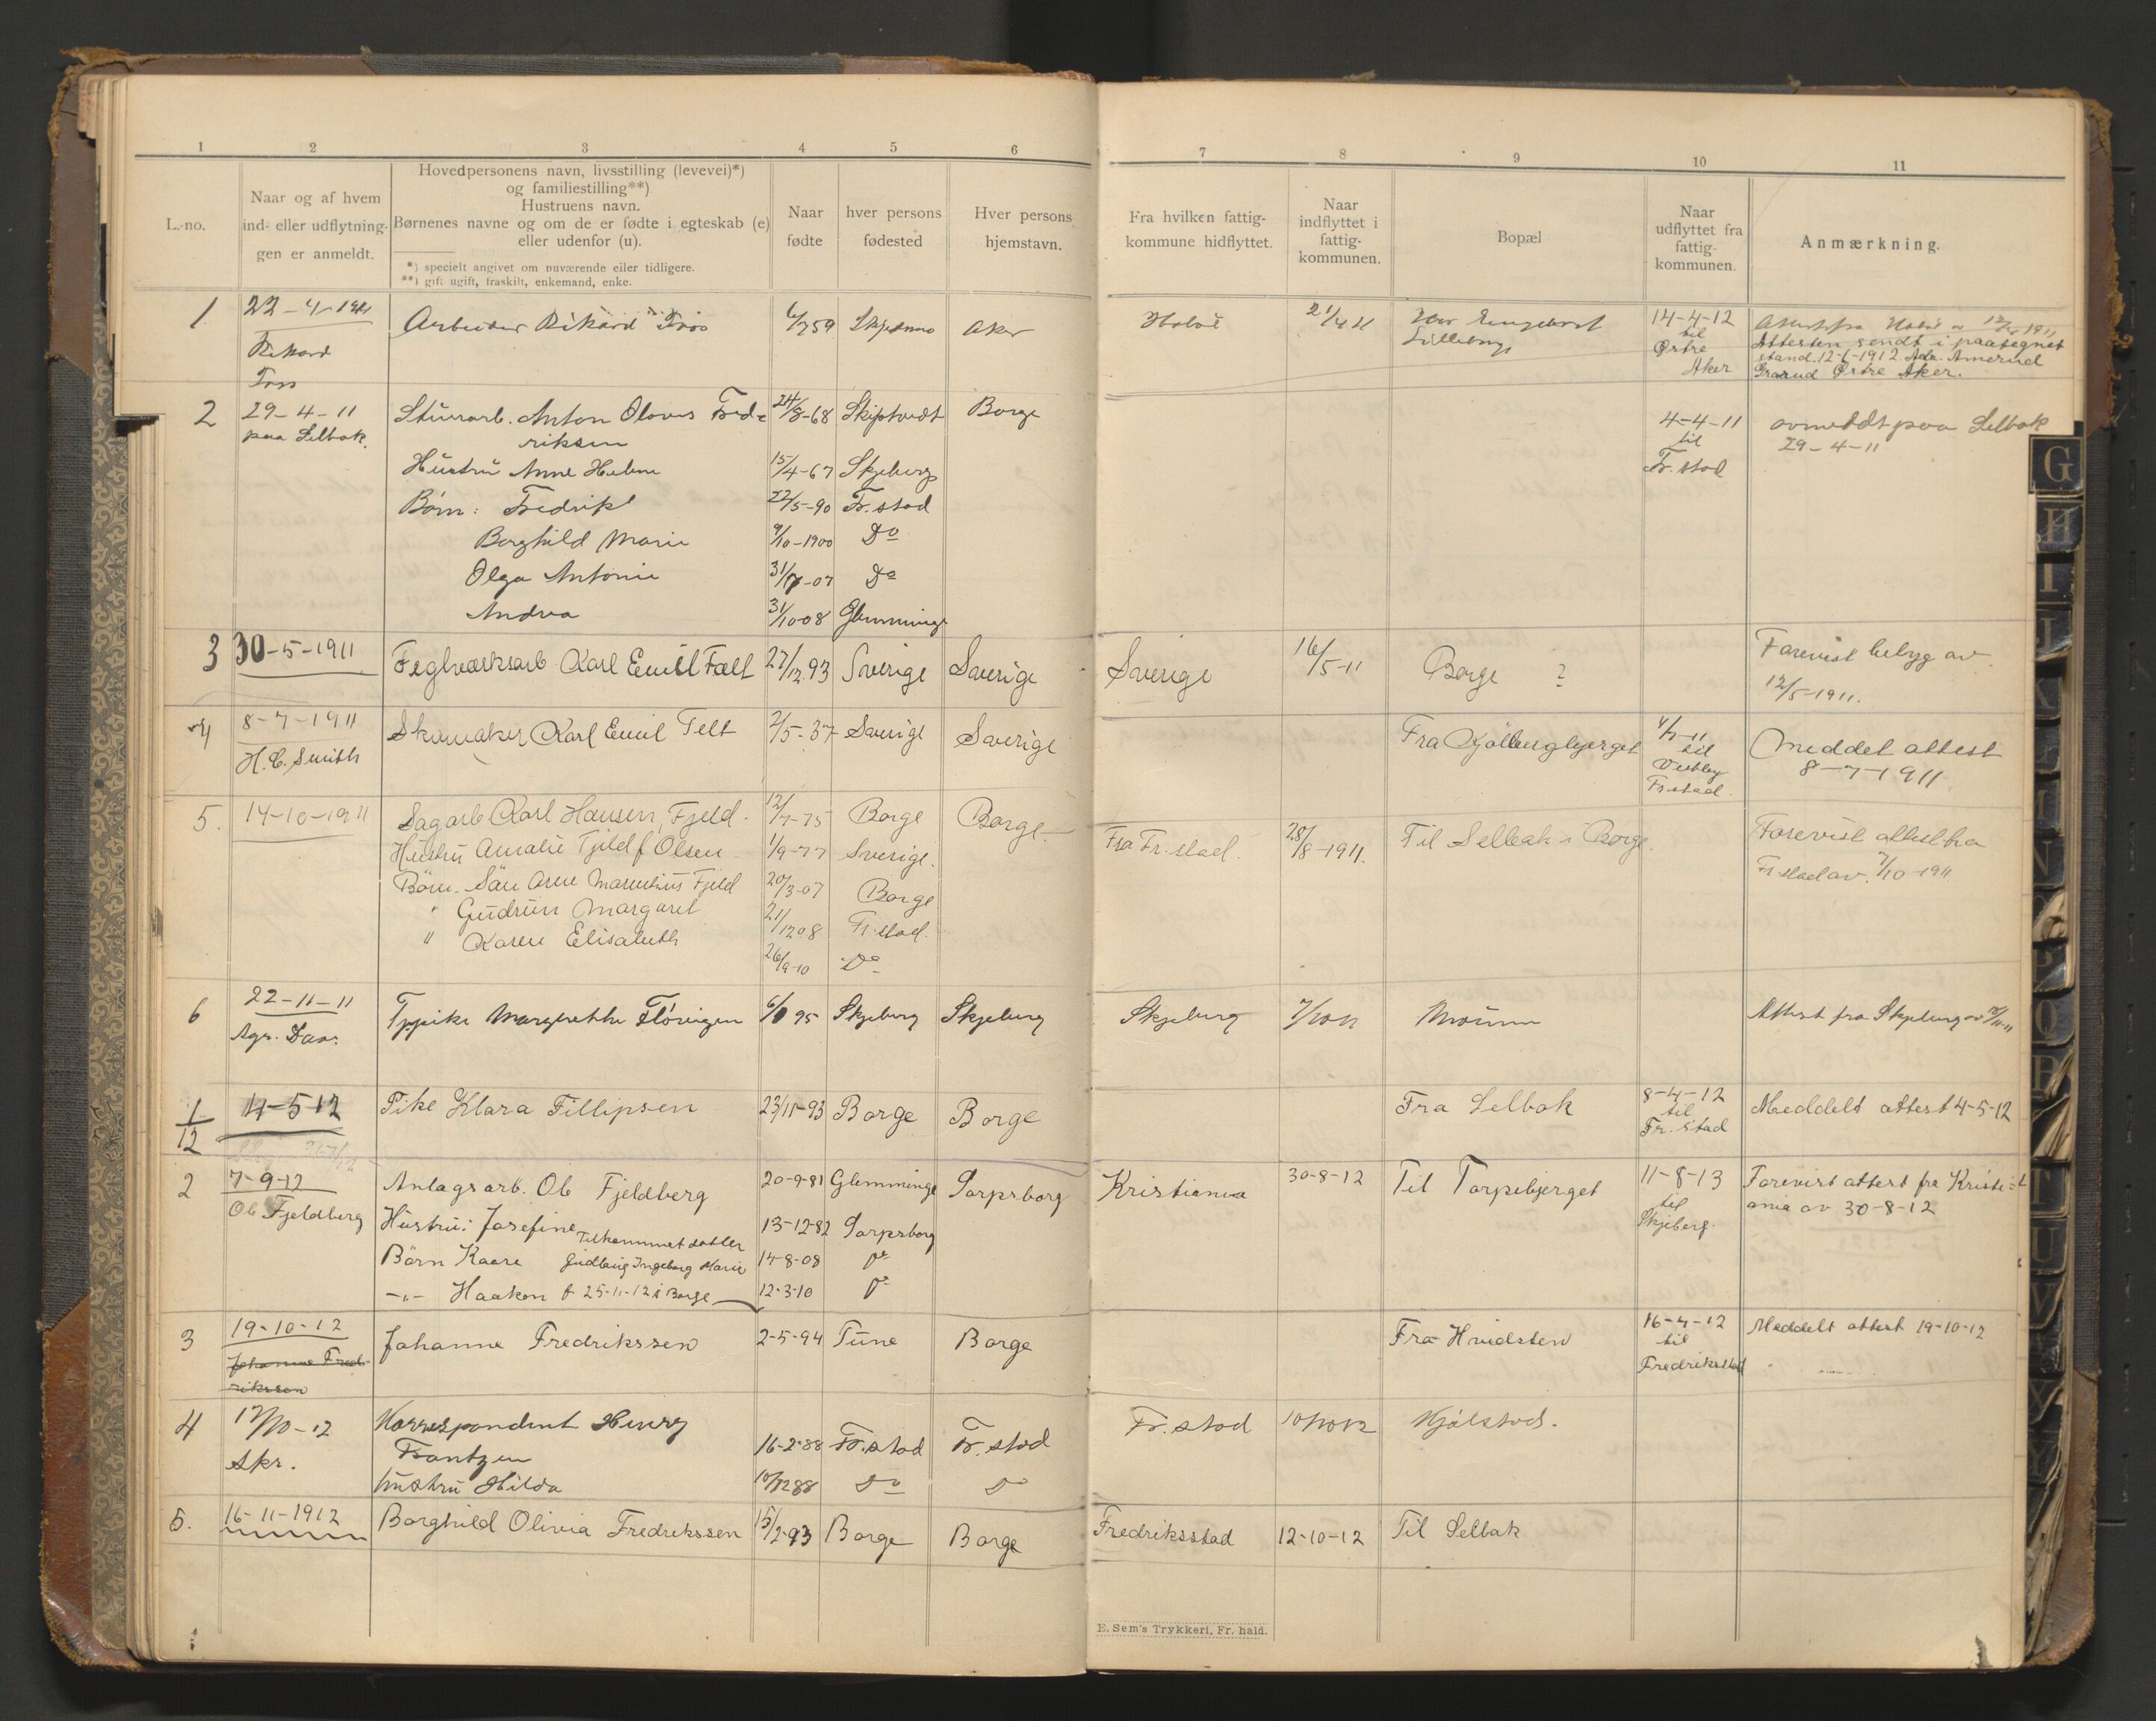 1 2 3 4 5 6 7 8 9 10 11
L.-no.
Naar og af hvem
ind- eller udflytnin-
gen er anmeldt.
Hovedpersonens navn, livsstilling (levevei)*)
og familiestilling**)
Hustruens navn.
Børnenes navne og om de er fødte i egteskab (e)
eller udenfor (u).
*) specielt angivet om nuværende eller tidligere.
**) gift ugift, fraskilt, enkemand, enke.
Naar
fødte
hver persons
fødested
Hver persons
hjemstavn.
Fra hvilken fattig-
kommune hidflyttet.
Naar
indflyttet i
fattig-
kommunen.
Bopæl
Naar
udflyttet fra
fattig-
kommunen.
Anmærkning.
1 22-4-1911 Arbeider Rikard 6/7 59 Aker Hobøl 21/4 11 14-4-12
til
Østre
Aker
Attest fra Hobøl 1911
Attesten sendt i paategnet
stand. 12-6-1912. Adr. Amerud
Grorud Østre Aker.
Rikard
2 29-4-11 Anton Olavus Fred- 24/8-68 Skiptvedt Borge 4-4-11 avmeldt paa Selbak
paa Selbak. riksen til 29-4-11
Hustru Anne Helene 15/4-67 Skjeberg Fr. stad
Børn: Fredrik 22/5-90 Fr. stad
Borghild Marie 9/10-1900 Do
Olga Antonie 31/-07 Do
Andrea 31/10-08 Glemminge
3 30-5-1911 Teglværksarb Karl Emil Fælt 27/12 93 Sverige Sverige Sverige 16/5-11 Borge ? Forevist betyg av
12/5-1911.
4 8-7-1911 Skomaker Karl Emil Felt 2/5-37 Sverige Sverige Fra Kjølbergbjerget til Meddelt attest
H. C. Smith Fr.stad. 8-7-1911
5. 14-10-1911 Sagarb Karl Hansen Fjeld. 12/7-75 Borge Borge Fra Fr. stad. 28/8-1911. Til Selbak i Borge. Forevist attest fra
Hustru Amalie Fjeld f Olsen 1/9-77 Sverige. Fr.stad av. 7/10-1911
Børn. Arne Fjeld 20/3-07 Borge
" Gudrun Margaret 21/12 08 Fr. stad.
" Karen Elisabeth 26/9-10 Do
6 22-11-11 Margrethe 95 Skjeberg Skjeberg Skjeberg Moum Attest fra Skjeberg av
Agr.
1/12 4-5-12 Pike Klara Fillipsen 23/11-93 Borge Borge Fra Selbak 8-4-12 Meddelt attest 4-5-12
til
Fr. stad
2 7-9-12 Anlagsarb. Ole Fjeldberg 20-9-81 Glemminge Sarpsborg Kristiania 30-8-12 Til Torpebjerget 11-8-13 Forevist attest fra Kristi-
Ole Fjeldberg Hustru: Josefine 13-12-82 Sarpsborg til ania av 30-8-12
Tilkommet datter Skjeberg.
Børn Kaare Gudlaug Ingeborg Marie 14-8-08 Do
-"- Haakon f 25-11-12 i Borge 12-3-10 Do
3 19-10-12 Johanne Fredrikssen 2-5-94 Tune Borge Fra Hvidsten 16-4-12 Meddelt attest 19-10-12
Johanne Fred- til
rikssen Fredriksstad
4 17/10-12 Korrespondent Henry Fr. stad 10/10 12 Kjølstad.
Skr. Frantzen 16-2-88 Fr. stad Fr. stad
hustru Hilda 10/12 88 Do Do
5. 16-11-1912 Borghild Olivia Fredrikssen 15/2-93 Borge Borge Fredriksstad 12-10-12 Til Selbak
E. Sem's Trykkeri, Fr. hald.
G
H
I
J
U
V